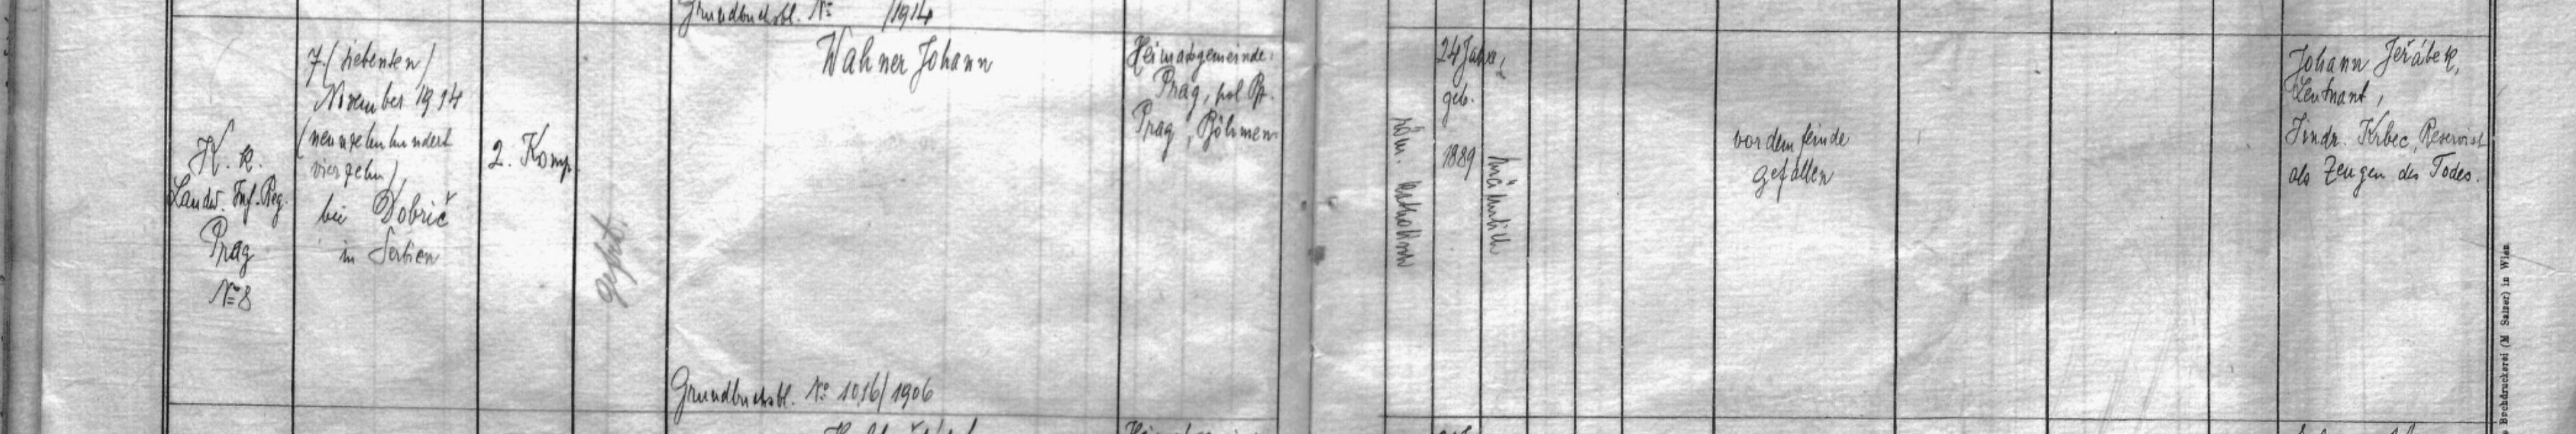 Grundbuchsbl. № /1914
K. k.
Landw. Inf. Reg.
Prag
№ 8
7. (siebenten)
November 1914
(neunzehnhundert
vierzehn)
bei Dobrič
in Serbien
2. Komp.
Wahner Johann
Grundbuchsbl. № 1016/1906
Heimatsgemeinde:
Prag, pol. Bz.
Prag, Böhmen
röm. katholisch
24 Jahre,
geb.
1889
männlich
vor dem Feinde
gefallen
Johann Jeřábek,
Leutnant,
Jindr. Krbec, Reservist
als Zeugen des Todes.
Buchdruckerei (M Salzer) in Wien